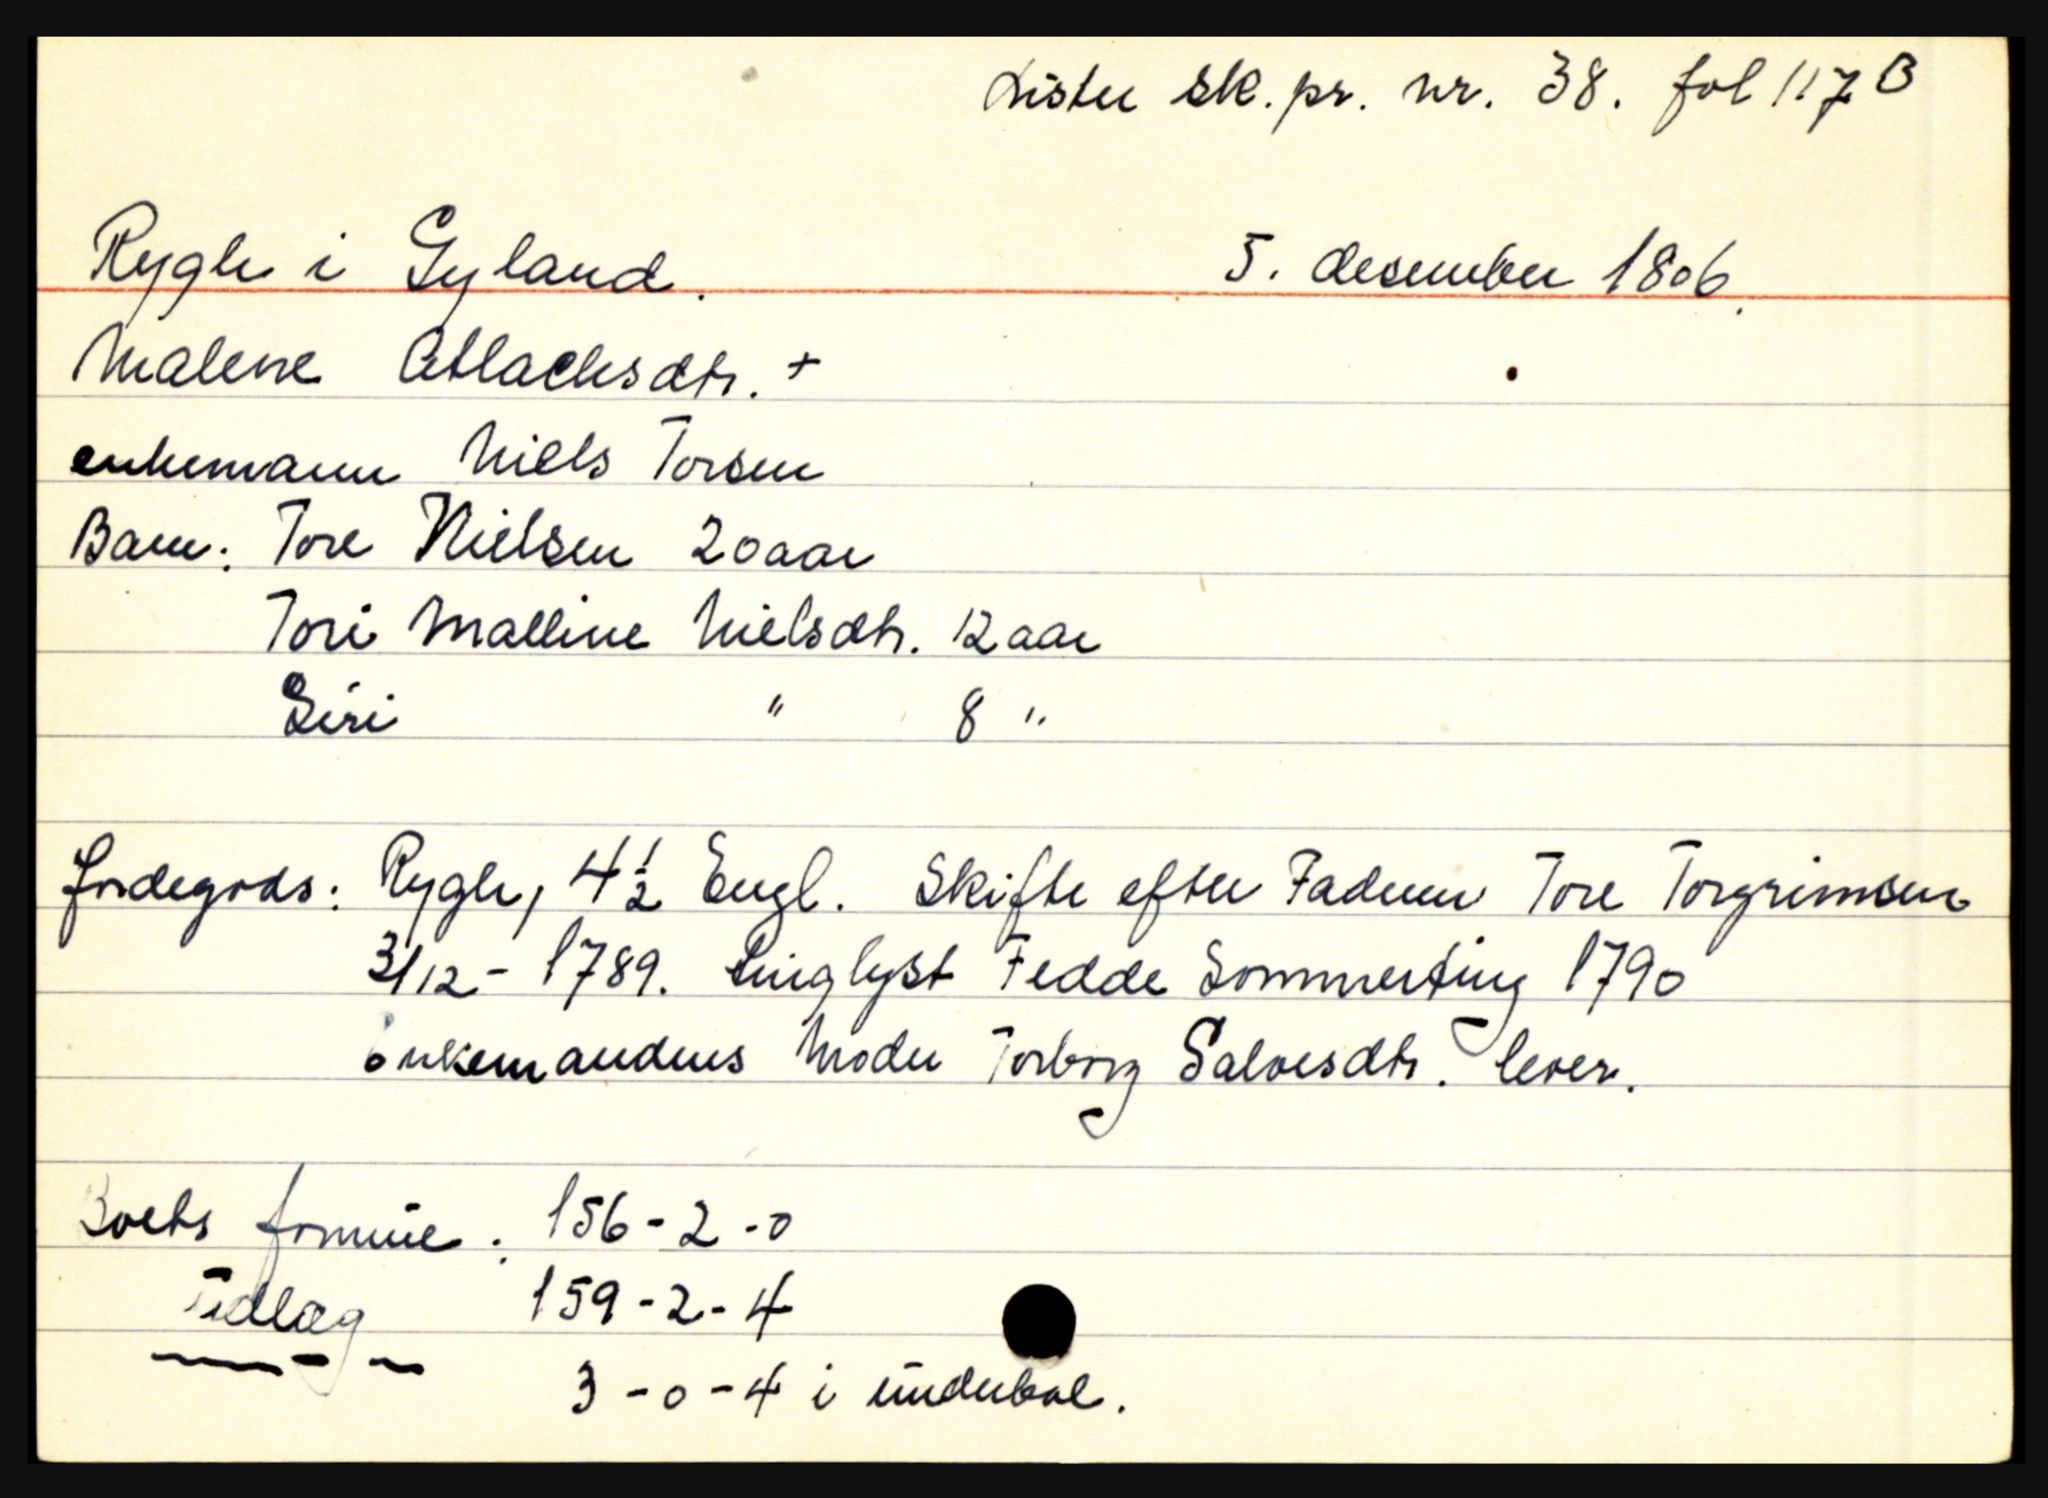 Lister sk. pr. nr. 38. fol 117 B
Rygle i Gyland. 5. desember 1806.
Malene Atlachsdtr. +
enkemann Niels Torsen
Barn: Tore Nielsen 20 aar
Tori Malline Nielsdtr. 12 aar
Siri " 8 "
Jordegods: Rygle, 4 1/2 Engl. Skifte efter Faderen Tore Torgrimsen
3/12 - 1789. Tinglyst Fedde Sommerting 1790
Enkemandens Moder Torborg Salvesdtr. lever.
Boets formue: 156 - 2 - 0
Fradlæg 159 - 2 - 4
3 - 0 - 4 i underbal.